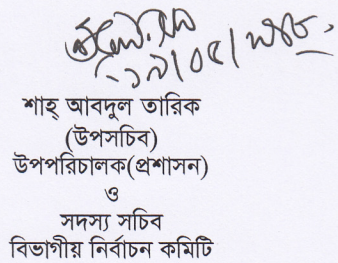 শাহ্ আবদুল তারিক
(উপসচিব)
উপপরিচালক(প্রশাসন)
ও
সদস্য সচিব
বিভাগীয় নির্বাচন কমিটি